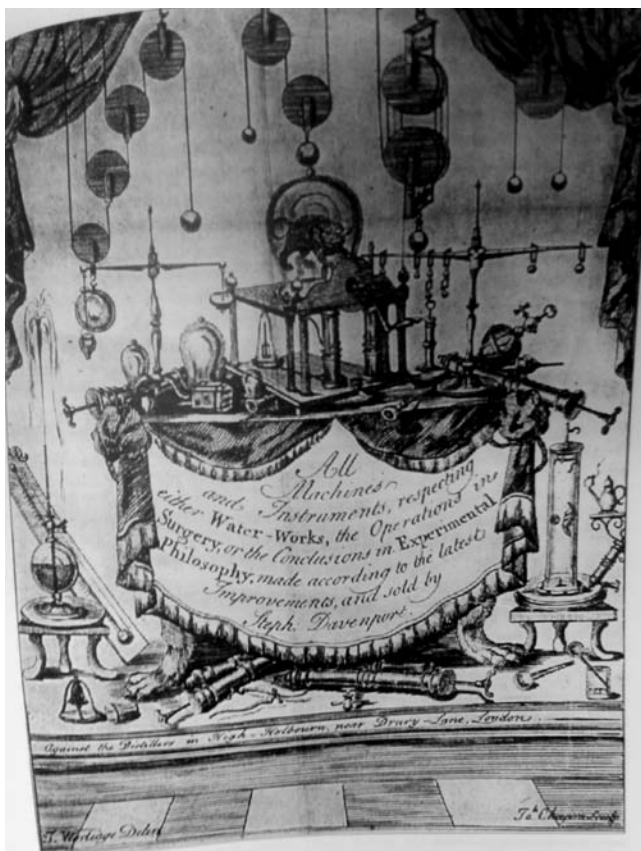 All
Machines
and Instruments, respecting
either Water-Works, the Operations in
Surgery, or the Conclusions in Experimental
Philosophy, made according to the latest
Improvements, and sold by
Steph. Davenport.
Against the Distillers in High-Holbourn, near Drury-Lane, London.
T. Worlidge Delin
Jah. Chapman Sculp